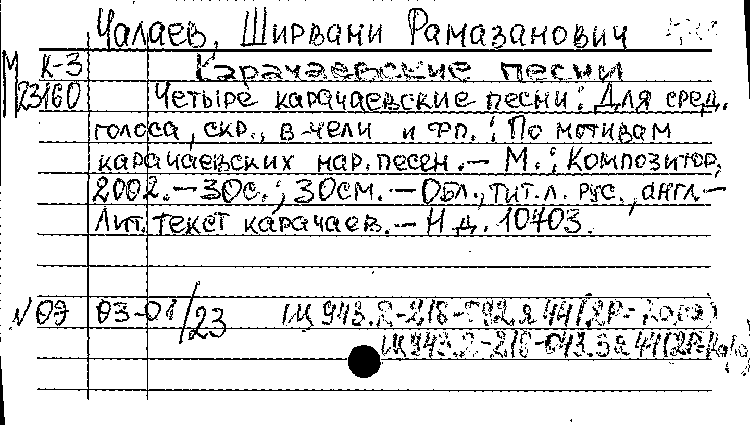 Чалаев, Ширвани Рамазанович
М К-3 Карачаевские песни
23160 Четыре карачаевские песни: Для сред.
голоса, скр., в-чели и фп.: По мотивам
карачаевских нар. песен. — М.: Композитор,
2002. — 30с.; 30см. — Обл., тит. л. рус., англ. —
Лит. текст карачаев. — Н д. 10703.
№ 09 03-01/23 Щ 943.2-218-
Щ 943.2-218-043.3я44